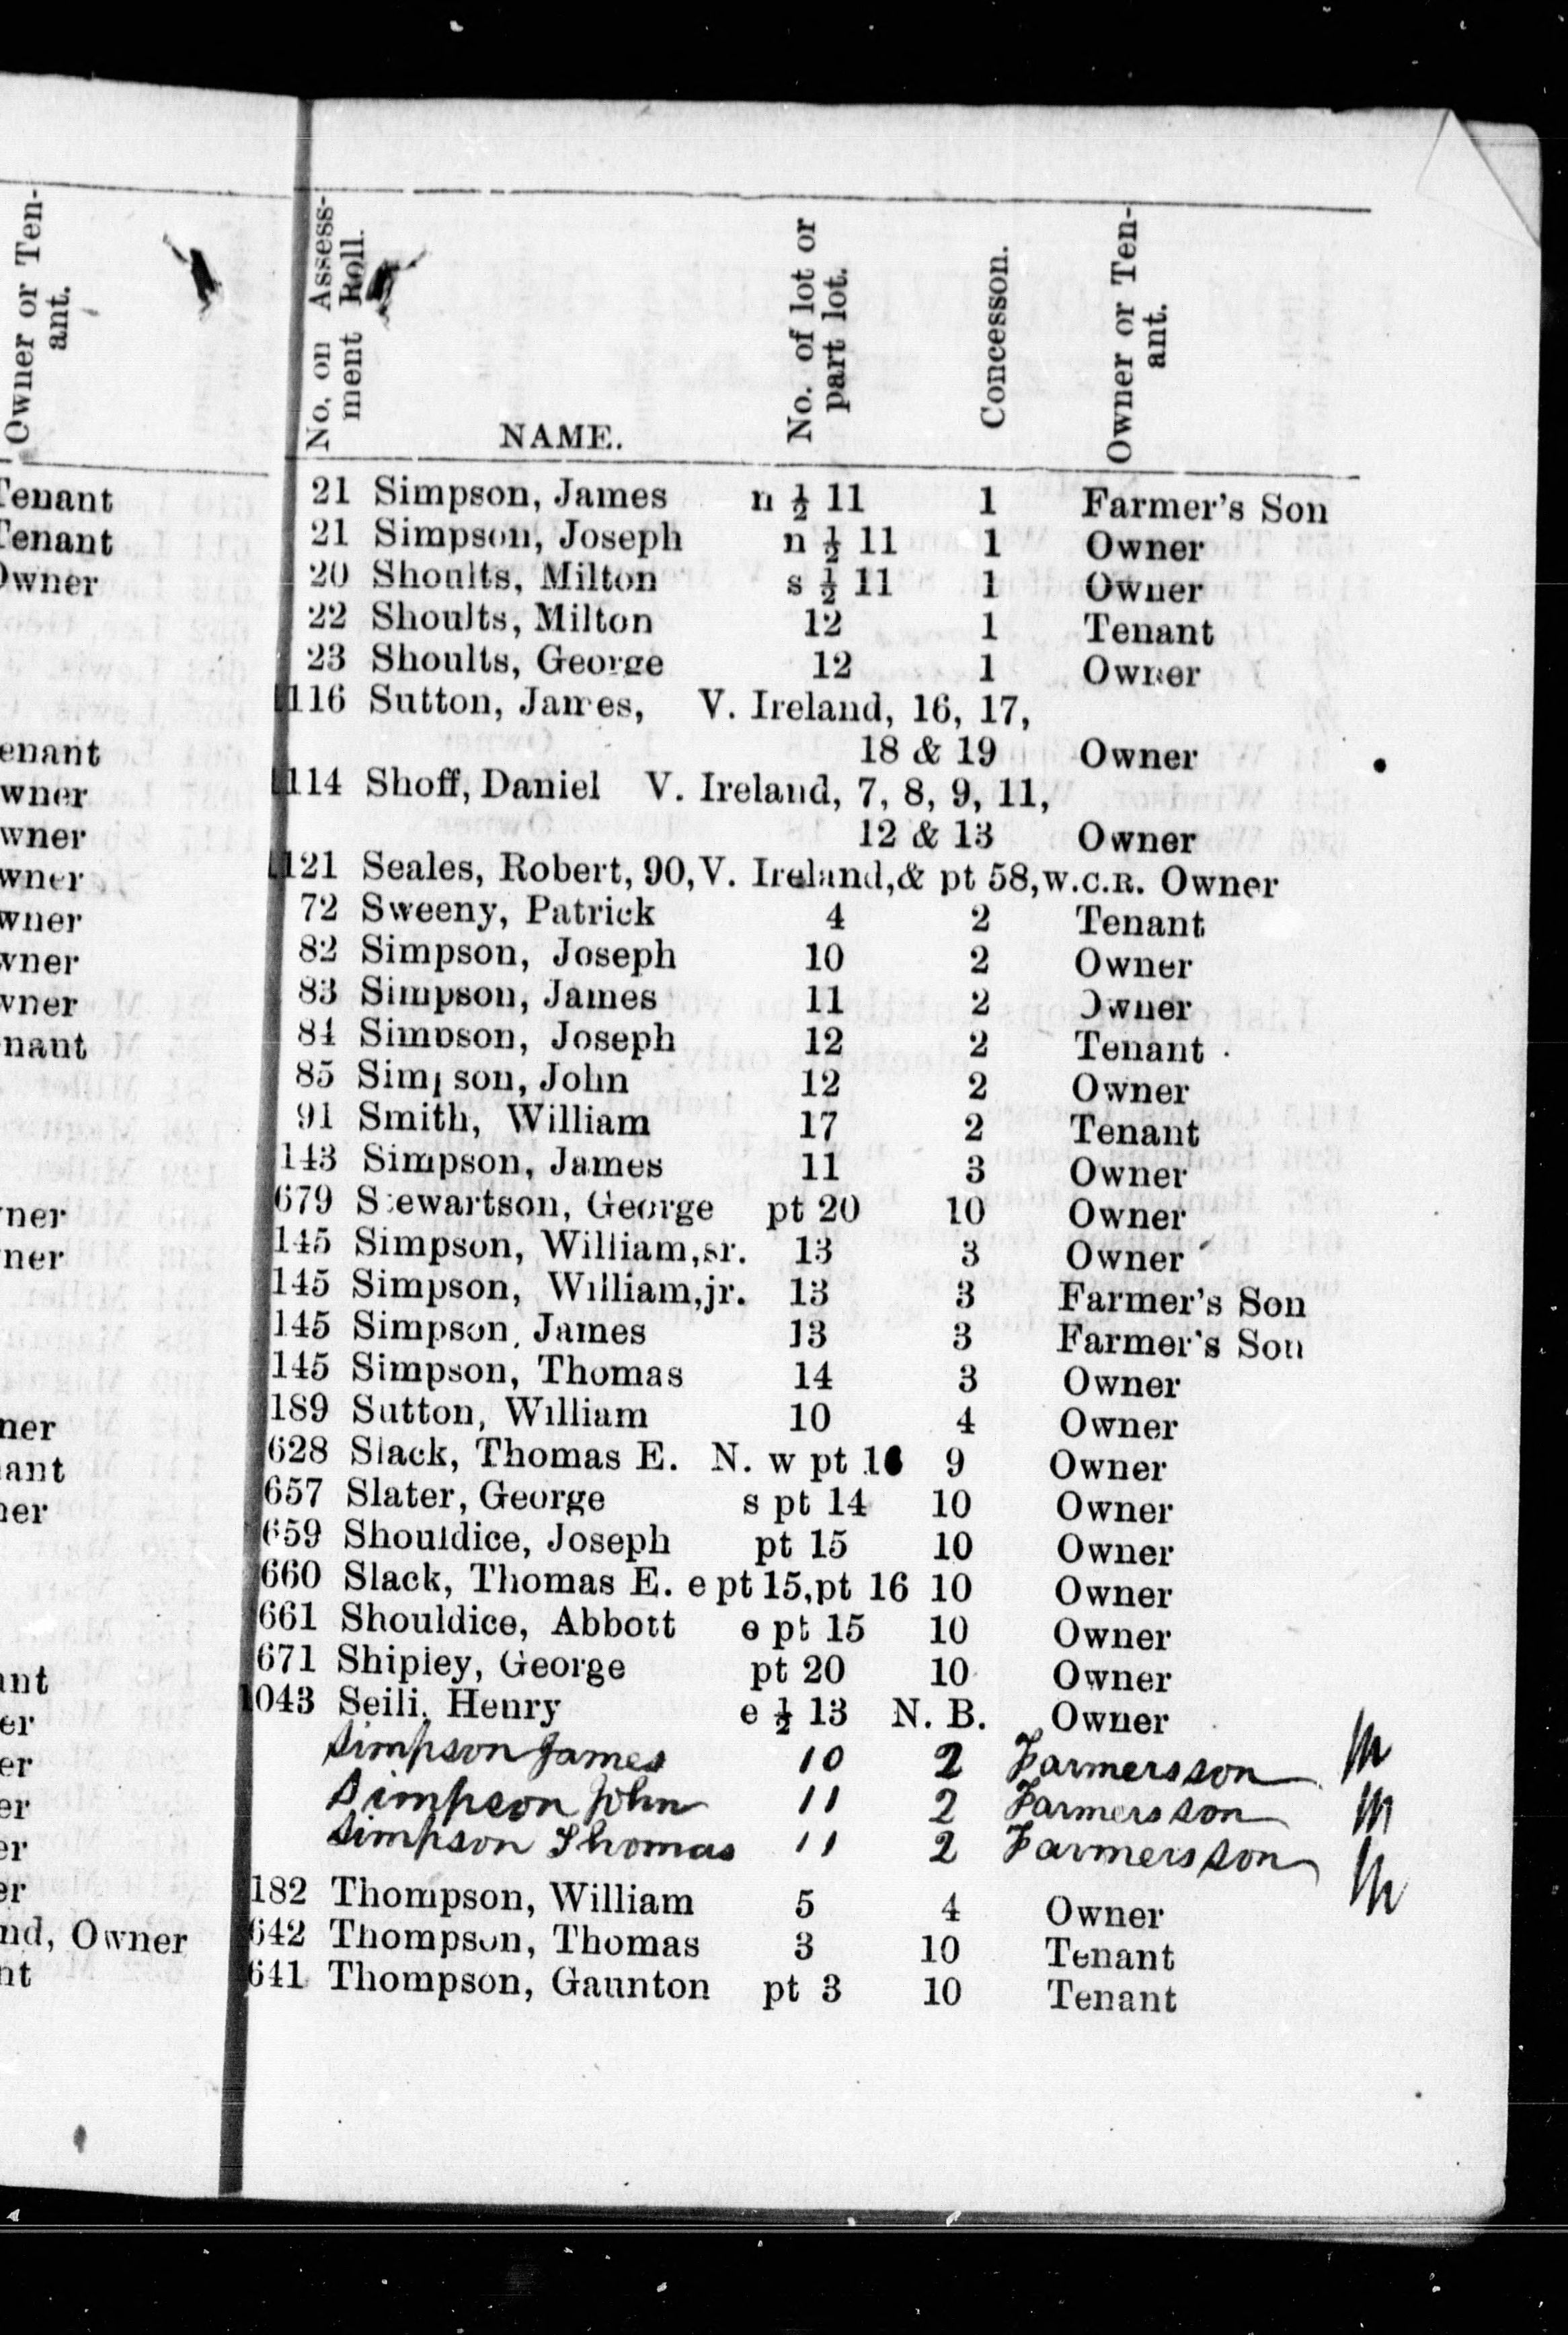 Owner or Ten-
ant.
Tenant
Tenant
Owner
enant
wner
wner
wner
wner
wner
wner
nant
ner
ner
ner
ant
ner
ant
er
er
er
er
er
nd, Owner
nt
No. on Assess-
ment Roll.
NAME.
No. of lot or
part lot.
Concesson.
Owner or Ten-
ant.
21 Simpson, James n ½ 11 1 Farmer's Son
21 Simpson, Joseph n ½ 11 1 Owner
20 Shoults, Milton s ½ 11 1 Owner
22 Shoults, Milton 12 1 Tenant
23 Shoults, George 12 1 Owner
1116 Sutton, James, V. Ireland, 16, 17,
18 & 19 Owner
1114 Shoff, Daniel V. Ireland, 7, 8, 9, 11,
12 & 13 Owner
1121 Seales, Robert, 90, V. Ireland, & pt 58, W.C.R. Owner
72 Sweeny, Patrick 4 2 Tenant
82 Simpson, Joseph 10 2 Owner
83 Simpson, James 11 2 Owner
84 Simpson, Joseph 12 2 Tenant
85 Simpson, John 12 2 Owner
91 Smith, William 17 2 Tenant
143 Simpson, James 11 3 Owner
679 Stewartson, George pt 20 10 Owner
145 Simpson, William, sr. 13 3 Owner
145 Simpson, William, jr. 13 3 Farmer's Son
145 Simpson, James 13 3 Farmer's Son
145 Simpson, Thomas 14 3 Owner
189 Sutton, William 10 4 Owner
628 Slack, Thomas E. N. w pt 16 9 Owner
657 Slater, George s pt 14 10 Owner
659 Shouldice, Joseph pt 15 10 Owner
660 Slack, Thomas E. e pt 15, pt 16 10 Owner
661 Shouldice, Abbott e pt 15 10 Owner
671 Shipley, George pt 20 10 Owner
1043 Seili, Henry e ½ 13 N. B. Owner
Simpson James 10 2 Farmers son
Simpson John 11 2 Farmers son
Simpson Thomas 11 2 Farmers son
182 Thompson, William 5 4 Owner
642 Thompson, Thomas 3 10 Tenant
641 Thompson, Gaunton pt 3 10 Tenant